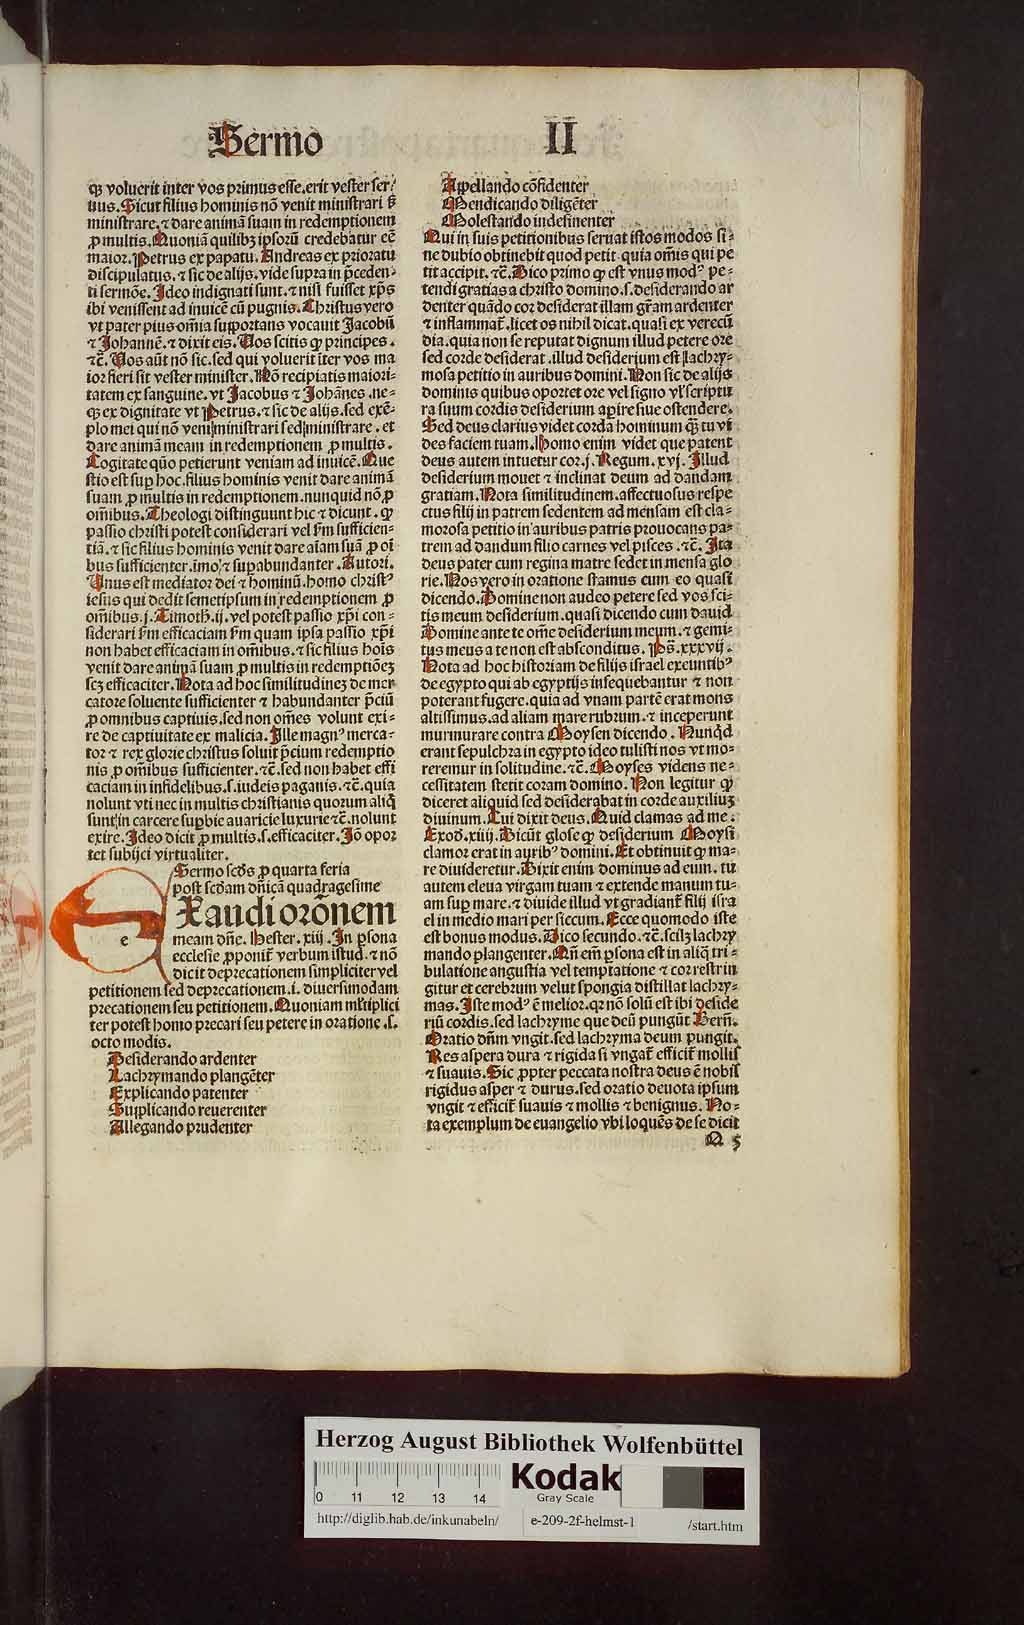 Sermo II
qȝ voluerit inter vos primus esse.erit vester ser⸗
uus. Sicut filius hominis nō venit ministrari s̄
ministrare. ⁊ dare animā suam in redemptionem
ꝓ multis. Quoniā quilibȝ ipsorū credebatur eē
maior. Petrus ex papatu. Andreas ex prioratu
discipulatus. ⁊ sic de alijs. vide supra in p̄ceden⸗
ti sermōe. Ideo indignati sunt. ⁊ nisi fuisset xp̄s
ibi venissent ad inuicē cū pugnis. Christus vero
vt pater pius om̄ia supportans vocauit Jacobū
⁊ Johannē. ⁊ dixit eis. Vos scitis ꝙ principes.
⁊c̄. Vos aūt nō sic. sed qui voluerit īter vos ma
ior fieri sit vester minister. Nō recipiatis maiori⸗
tatem ex sanguine. vt Jacobus ⁊ Johānes .ne⸗
qȝ ex dignitate vt Petrus. ⁊ sic de alijs. sed exē⸗
plo mei qui nō veni ministrari sed ministrare . et
dare animā meam in redemptionem ꝓ multis.
Cogitate quō petierunt veniam ad inuicē. Que
stio est suꝑ hoc. filius hominis venit dare animā
suam ꝓ multis in redemptionem. nunquid nō ꝓ
om̄ibus. Theologi distinguunt hic ⁊ dicunt. ꝙ
passio christi potest considerari vel s̄m sufficien⸗
tiā. ⁊ sic filius hominis venit dare aīam suā ꝓ oī
bus sufficienter. īmo ⁊ suꝑabundanter. Autori.
Vnus est mediator dei ⁊ hominū. homo christꝰ
iesus qui dedit semetipsum in redemptionem ꝓ
om̄ibus. j. Timoth. ij. vel potest passio xp̄i con⸗
siderari s̄m efficaciam s̄m quam ipsa passio xp̄i
non habet efficaciam in om̄ibus. ⁊ sic filius hoīs
venit dare animā suam ꝓ multis in redemptiōeȝ
scȝ efficaciter. Nota ad hoc similitudineȝ de mer
catore soluente sufficienter ⁊ habundanter p̄ciū
ꝓ omnibus captiuis. sed non om̄es volunt exi⸗
re de captiuitate ex malicia. Ille magnꝰ merca⸗
tor ⁊ rex glorie christus soluit p̄cium redemptio
nis ꝓ om̄ibus sufficienter. ⁊c̄. sed non habet effi
caciam in infidelibus. s. iudeis paganis. ⁊c̄. quia
nolunt vti nec in multis christianis quorum aliq̄
sunt in carcere suꝑbie auaricie luxurie ⁊c̄. nolunt
exire. Ideo dicit ꝓ multis. s. efficaciter. Iō opor
tet subijci virtualiter.
Sermo scd̄s ꝓ quarta feria
post scd̄am dn̄icā quadragesime
e
Exaudi orōnem
meam dn̄e. Hester. xiij. In ꝑsona
ecclesie ꝓponit̄ verbum istud. ⁊ nō
dicit deprecationem simpliciter vel
petitionem sed deprecationem. i. diuersimodam
precationem seu petitionem. Quoniam ml̄tiplici
ter potest homo precari seu petere in oratione .s.
octo modis.
Desiderando ardenter
Lachrymando plangēter
Explicando patenter
Supplicando reuerenter
Allegando prudenter
Appellando cōfidenter
Mendicando diligēter
Molestando indesinenter
Qui in suis petitionibus seruat istos modos si⸗
ne dubio obtinebit quod petit quia om̄is qui pe
tit accipit. ⁊c̄. Dico primo ꝙ est vnus modꝰ pe⸗
tendi gratias a christo domino. s. desiderando ar
denter quādo cor desiderat illam gr̄am ardenter
⁊ inflammat̄. licet os nihil dicat. quasi ex verecū
dia. quia non se reputat dignum illud petere ore
sed corde desiderat .illud desiderium est lachry⸗
mosa petitio in auribus domini. Non sic de alijs
dominis quibus oportet ore vel signo vl̓ scriptu
ra suum cordis desiderium aperire siue ostendere.
Sed deus clarius videt corda hominum qȝ tu vi
des faciem tuam. Homo enim videt que patent
deus autem intuetur cor. j. Regum. xvj. Illud
desiderium mouet ⁊ inclinat deum ad dandam
gratiam. Nota similitudinem. affectuosus respe
ctus filij in patrem sedentem ad mensam est cla⸗
morosa petitio in auribus patris prouocans pa⸗
trem ad dandum filio carnes vel pisces. ⁊c̄. Ita
deus pater cum regina matre sedet in mensa glo
rie. Nos vero in oratione stamus cum eo quasi
dicendo. Domine non audeo petere sed vos sci⸗
tis meum desiderium. quasi dicendo cum dauid
Domine ante te om̄e desiderium meum. ⁊ gemi⸗
tus meus a te non est absconditus. Ps̄. xxxvij.
Nota ad hoc historiam de filijs israel exeuntibꝰ
de egypto qui ab egyptijs insequebantur ⁊ non
poterant fugere. quia ad vnam partē erat mons
altissimus. ad aliam mare rubrum. ⁊ inceperunt
murmurare contra Moysen dicendo. Nunqd̄
erant sepulchra in egypto ideo tulisti nos vt mo⸗
reremur in solitudine. ⁊c̄. Moyses videns ne⸗
cessitatem stetit coram domino. Non legitur ꝙ
diceret aliquid sed desiderabat in corde auxiliuȝ
diuinum. Cui dixit deus. Quid clamas ad me.
Exod. xiiij. Dicūt glose ꝙ desiderium Moysi
clamor erat in auribꝰ domini. Et obtinuit ꝙ ma⸗
re diuideretur. Dixit enim dominus ad eum. tu
autem eleua virgam tuam ⁊ extende manum tu⸗
am suꝑ mare. ⁊ diuide illud vt gradiant̄ filij isra
el in medio mari per siccum. Ecce quomodo iste
est bonus modus. Dico secundo. ⁊c̄. scilȝ lachry
mando plangenter. Qn̄ em̄ ꝑsona est in aliq̄ tri⸗
bulatione angustia vel temptatione ⁊ cor restrin
gitur et cerebrum velut spongia distillat lachry⸗
mas. Iste modꝰ ē melior. qr nō solū est ibi deside
riū cordis. sed lachryme que deū pungūt Bern̄.
Oratio dn̄m vngit. sed lachryma deum pungit.
Res aspera dura ⁊ rigida si vngat̄ efficit̄ mollis
⁊ suauis. Sic ꝓpter peccata nostra deus ē nobis
rigidus asper ⁊ durus. sed oratio deuota ipsum
vngit ⁊ efficit̄ suauis ⁊ mollis ⁊ benignus. No⸗
ta exemplum de euangelio vbi loquēs de se dicit
Q 5
Herzog August Bibliothek Wolfenbüttel
0 11 12 13 14
Kodak
Gray Scale
http://diglib.hab.de/inkunabeln/ e-209-2f-helmst-1 /start.htm